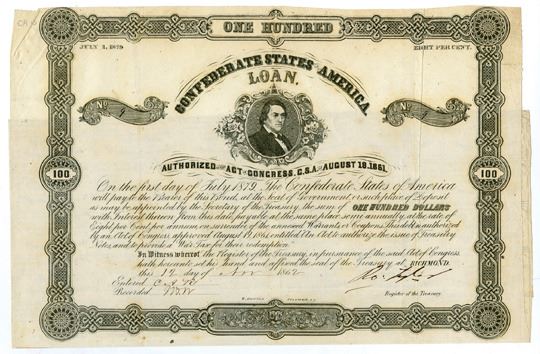 ONE HUNDRED
JULY 1, 1879 EIGHT PER CENT.
CONFEDERATE STATES OF AMERICA
LOAN.
No 1 No 1
AUTHORIZED BY ACT OF CONGRESS, C.S.A. OF AUGUST 19, 1861.
100 100
On the first day of July 1879, The Confederate States of America
will pay to the Bearer of this Bond, at the Seat of Government, or such place of Deposit
as may be appointed by the Secretary of the Treasury, the sum of ONE HUNDRED DOLLARS
with Interest thereon from this date, payable at the same place semi annually, at the rate of
Eight per Cent per annum on surrender of the annexed Warrants or Coupons. This debt is authorized
By an Act of Congress approved August 19, 1861, entitled An Act to authorize the issue of Treasury
Notes, and to provide a War Tax for their redemption.
In Witness whereof, the Register of the Treasury, in pursuance of the said Act of Congress,
hath hereunto set his hand and affixed the seal of the Treasury at RICHMOND,
this 12 day of Nov 1862
Entered
Recorded
Register of the Treasury